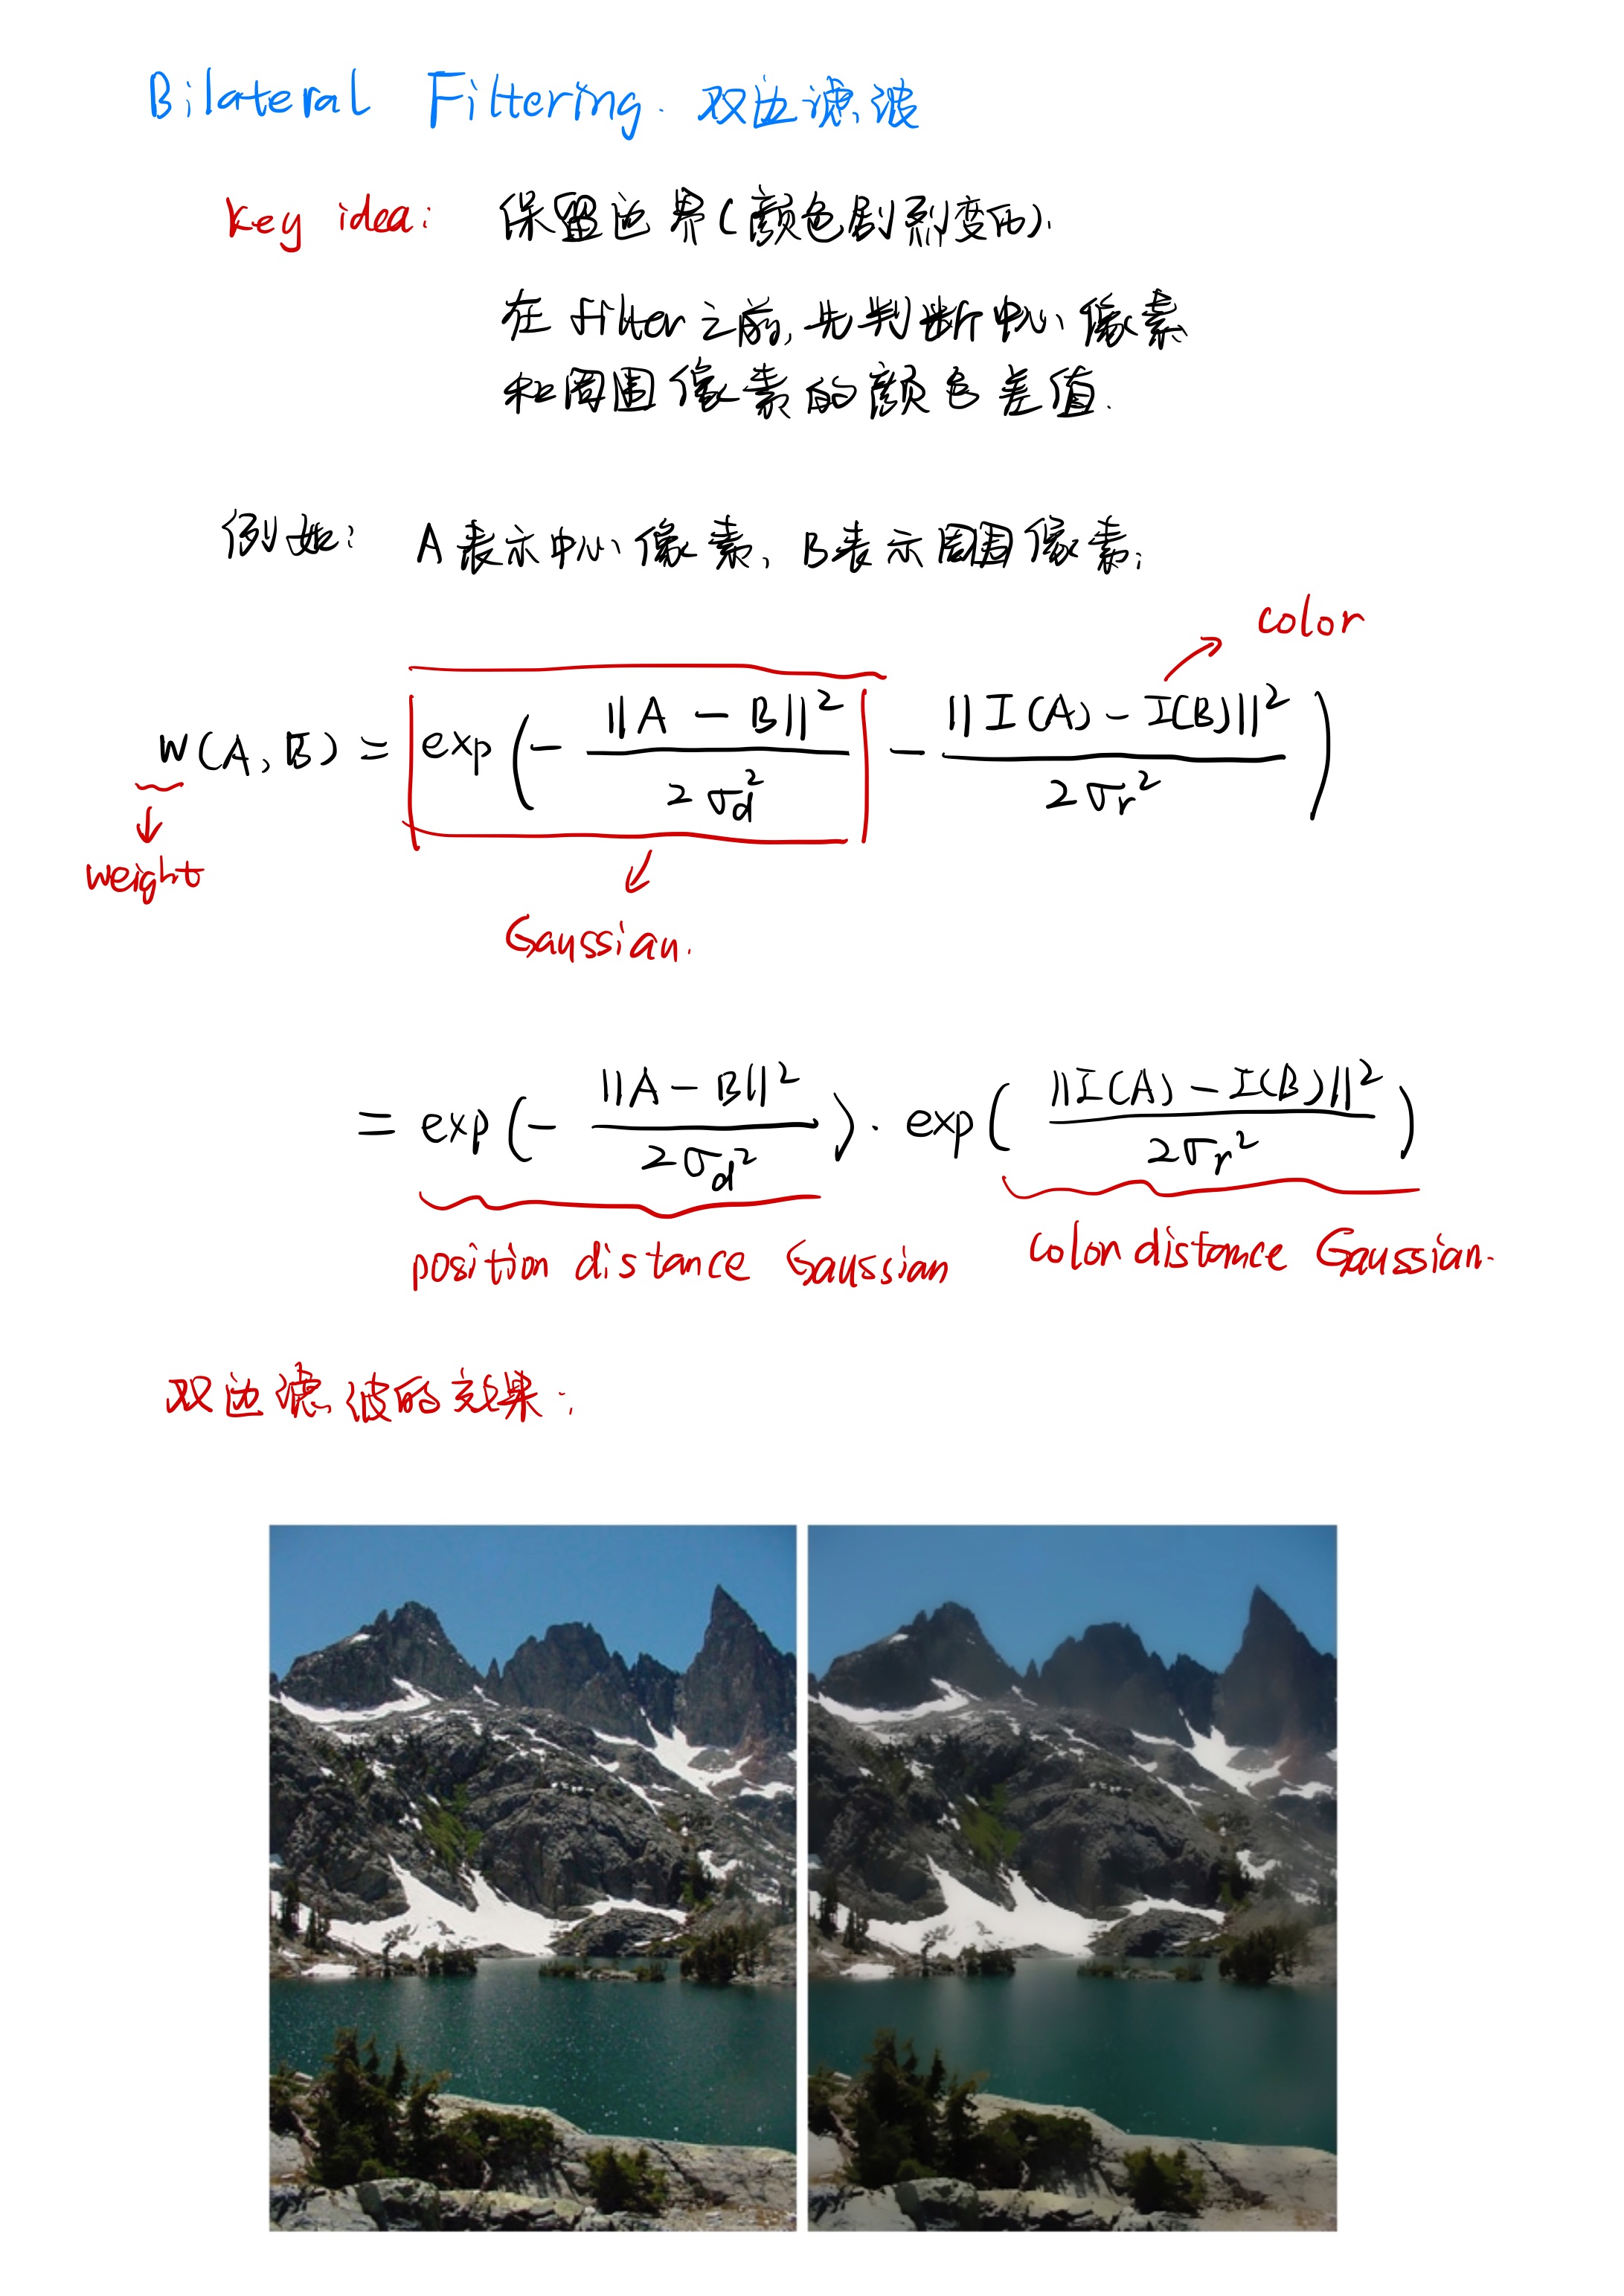 Bilateral Filtering. 双边滤波
key idea: 保留边界(颜色剧烈变化).
在 filter 之前, 先判断中心像素
和周围像素的颜色差值.
例如: A表示中心像素, B表示周围像素;
color
W(A, B) = exp(- ||A - B||² / 2σd² - ||I(A) - I(B)||² / 2σr²)
weight
Gaussian.
= exp(- ||A - B||² / 2σd²) · exp( ||I(A) - I(B)||² / 2σr²)
position distance Gaussian color distance Gaussian.
双边滤波的效果: